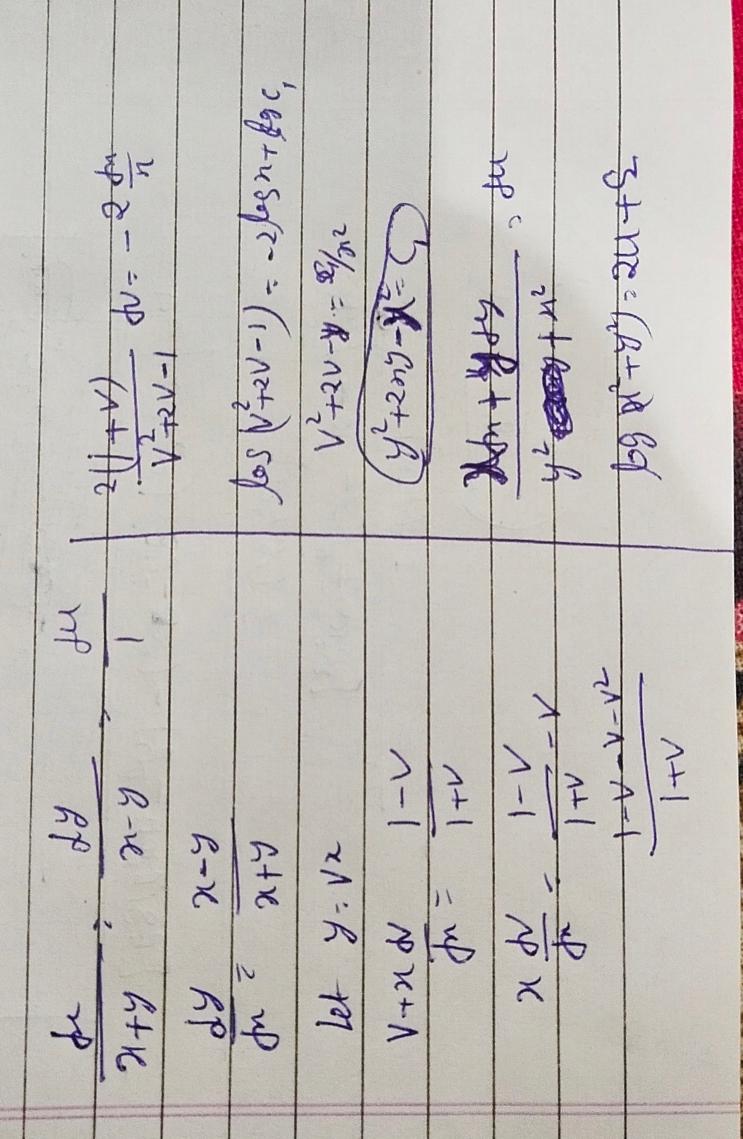 dx/(x+y) = dy/(x-y) = du/1
dy/dx = (x-y)/(x+y)
let y = vx
v + x dv/dx = (1-v)/(1+v)
x dv/dx = (1-v)/(1+v) - v
(1-v-v-v²)/(1+v)
2(1+v)/(v²+2v-1) dv = -2 dx/x
log(v²+2v-1) = -2log x + log c₁
v²+2v-1 = c₁/x²
y²+2xy-x² = c₁
= du
y² + x²
log(x²+y²) = 2u + c₂